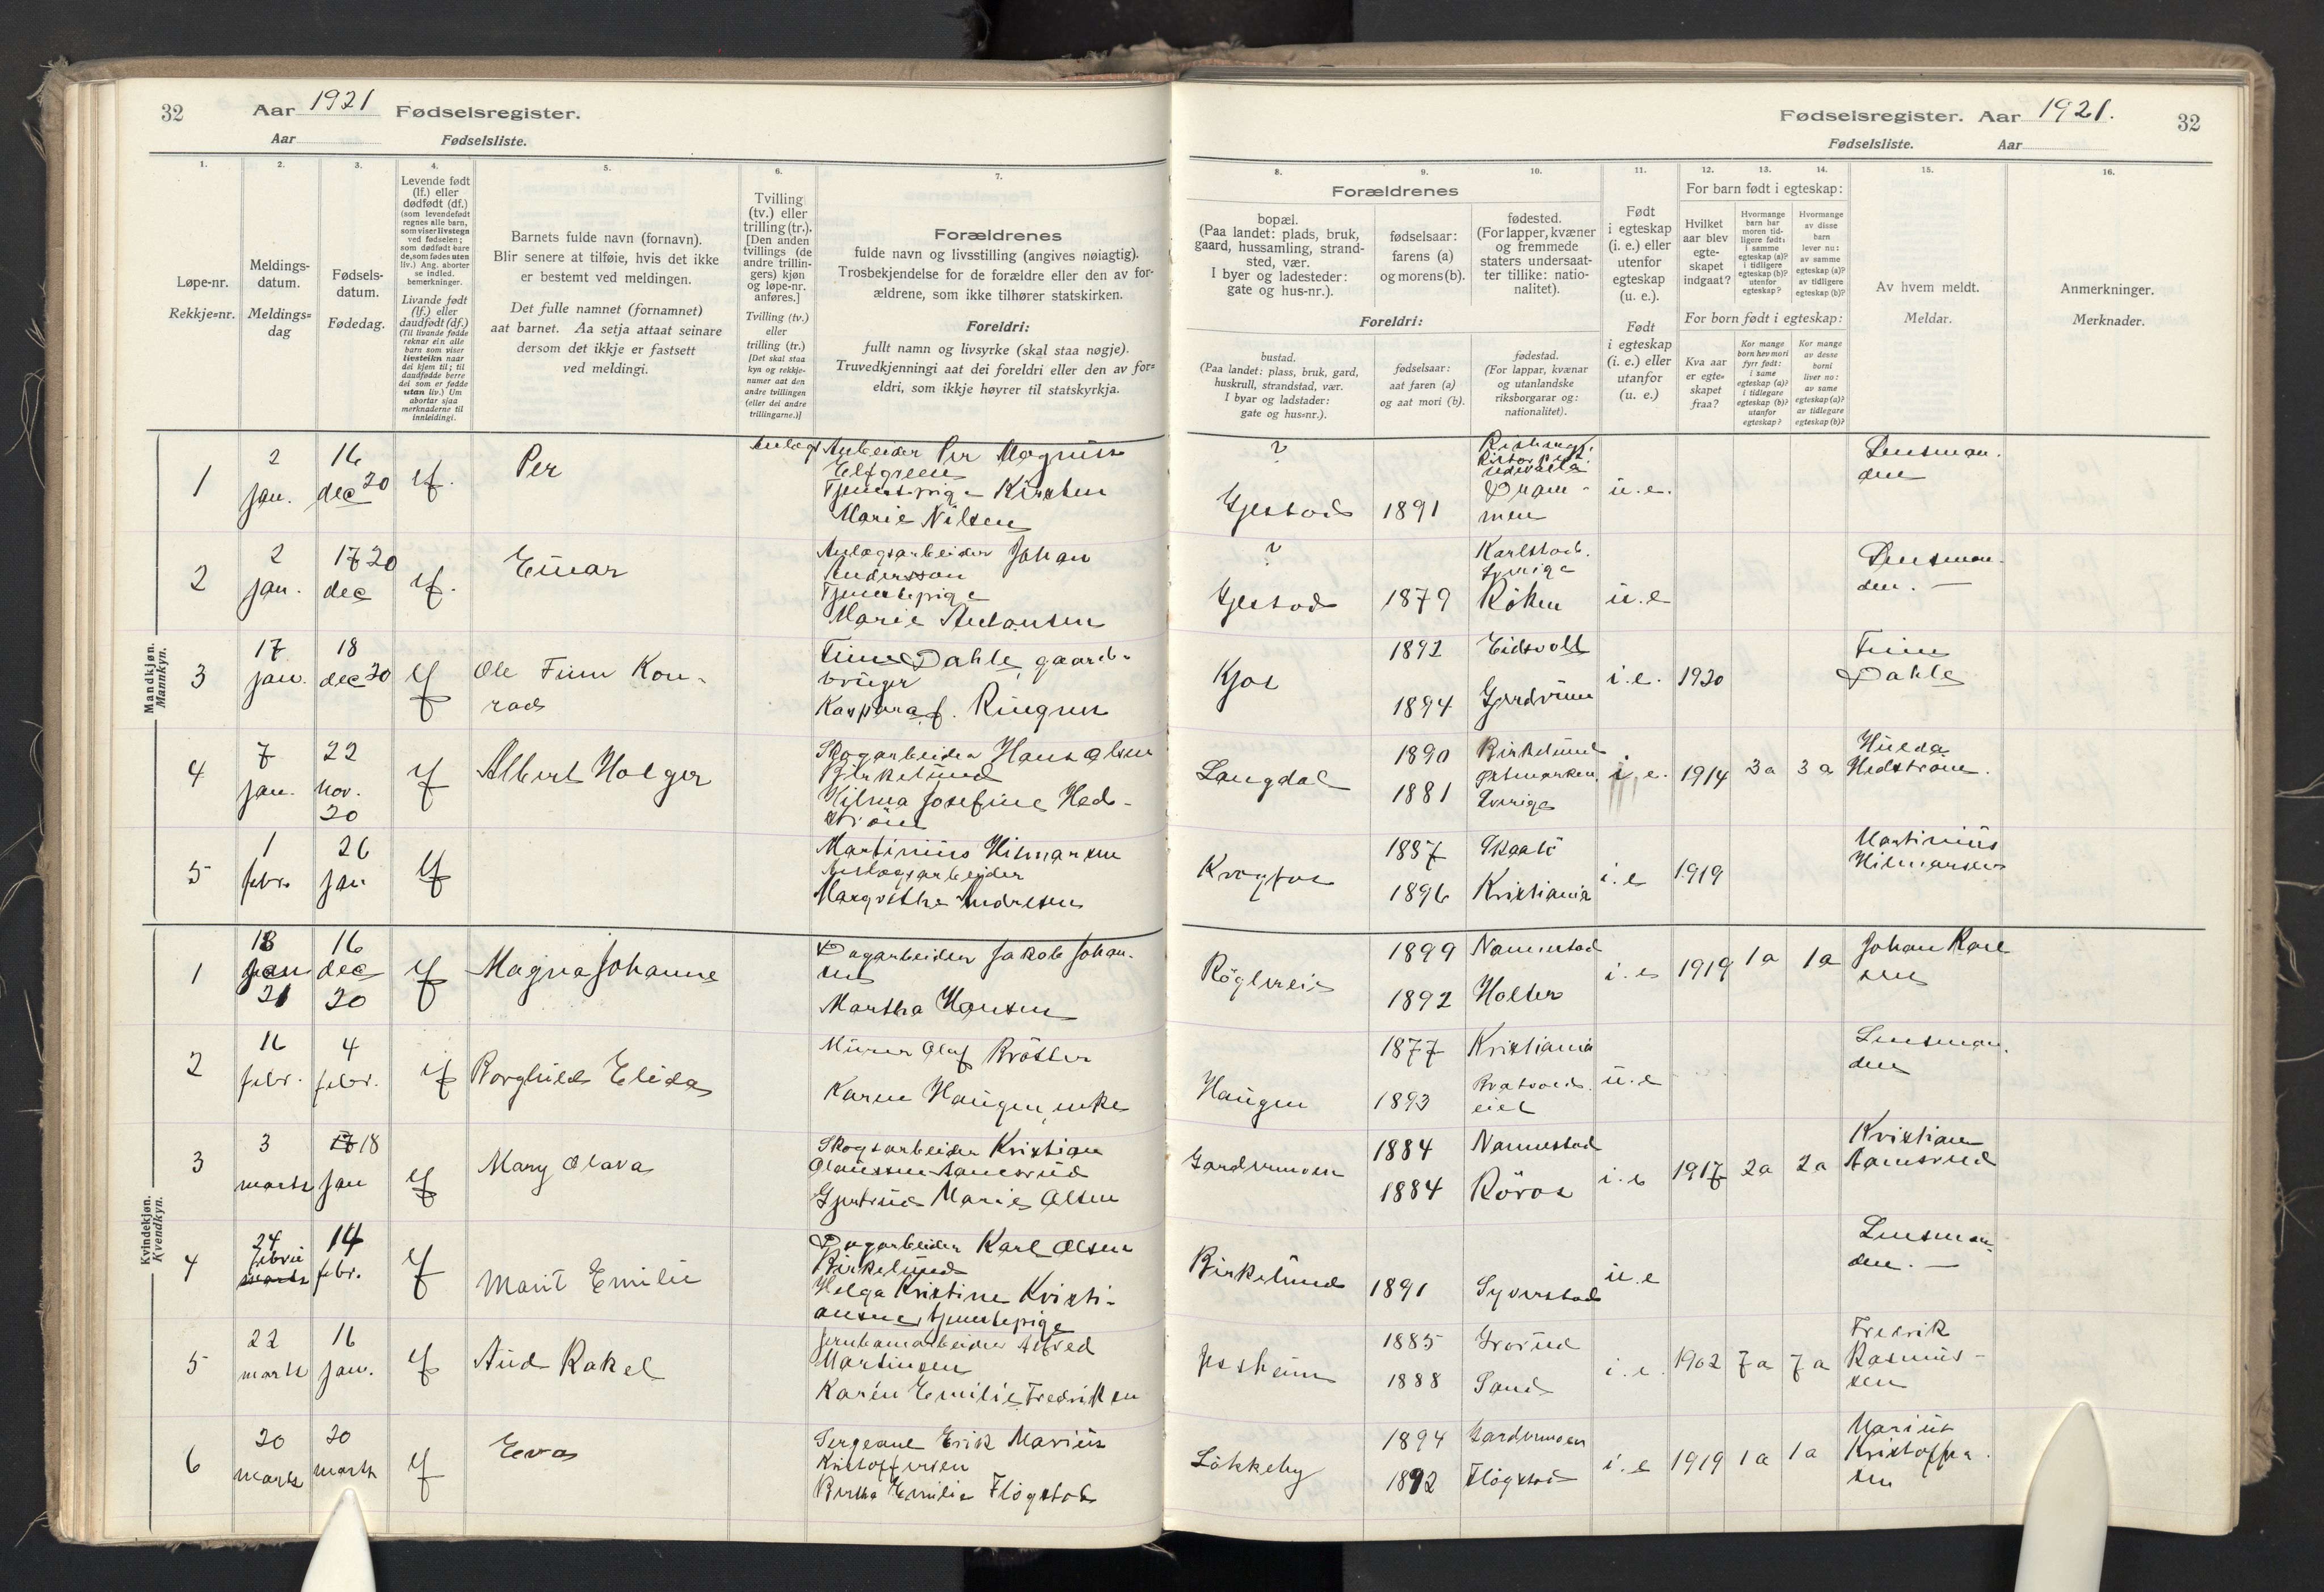 32
Aar 1921 Fødselsregister.
Aar Fødselsliste.
1.
2.
3.
4.
5.
6.
7.
Løpe-nr.
Rekkje=nr.
Meldings-
datum.
Meldings=
dag
Fødsels-
datum.
Fødedag.
Levende født
(lf.) eller
dødfødt (df.)
(som levendefødt
regnes alle barn,
som viser livstegn
ved fødselen;
som dødfødt bare
de, som fødes uten
liv.) Ang. aborter
se indled.
bemerkninger.
Livande født
(lf.) eller
daudfødt (df.)
(Til livande fødde
reknar ein alle
barn som viser
livsteikn naar
dei kjem til; til
daudfødde berre
dei som er fødde
utan liv.) Um
abortar sjaa
merknaderne til
innleidingi.
Barnets fulde navn (fornavn).
Blir senere at tilføie, hvis det ikke
er bestemt ved meldingen.
Det fulle namnet (fornamnet)
aat barnet. Aa setja attaat seinare
dersom det ikkje er fastsett
ved meldingi.
Tvilling
(tv.) eller
trilling (tr.).
[Den anden
tvillings (de
andre trillin-
gers) kjøn
og løpe-nr.
anføres.]
Tvilling (tv.)
eller
trilling (tr.)
[Det skal staa
kyn og rekkje-
numer aat den
andre tvillingen
(eller dei andre
trillingarne.)]
Forældrenes
fulde navn og livsstilling (angives nøiagtig).
Trosbekjendelse for de forældre eller den av for-
ældrene, som ikke tilhører statskirken.
Foreldri:
fullt namn og livsyrke (skal staa nøgje).
Truvedkjenningi aat dei foreldri eller den av for=
eldri, som ikkje høyrer til statskyrkja.
Mandkjøn.
Mannkyn.
1
2
jan.
16
dec 20
lf.
Per
Anlægs Arbeider Per Magnus
Elfgreen
Tjenestepige Kirsten
Marie Nilsen
2
2
jan.
17 20
dec
lf.
Einar
Anlægsarbeider Johan
Andersson
Tjenestepige
Marie Antonsen
3
17
jan.
18
dec 20
lf
Ole Finn Kon-
rad
Finn Dahle, gaard-
bruger
Kaspara f. Ringnes
4
7
jan.
22
nov.
20
lf
Albert Holger
Skogarbeider Hans Olsen
Birkelund
Hilma Josefine Hed-
strøm
5
1
febr.
26
jan
lf
Martinius Hilmarsen
Anlægsarbeider
Margrethe Andresen
Kvindekjøn.
Kvendkyn.
1
18
jan
21
16
dec
20
lf
Magna Johanne
Dagarbeider Jakob Johan-
sen
Martha Hansen
2
16
febr.
4
febr.
lf
Borghild Elida
Murer Olaf Bråthen
Karen Haugen, enke
3
3
marts
17 18
jan
lf
Mary Olava
Skogsarbeider Kristian
Olaussen Aamodrud
Gjertrud Marie Olsen
4
24
febru
marts
14
febr.
lf
Marit Emilie
Dagarbeider Karl Olsen
Birkelund
Helga Kristine Kristi-
ansen, tjenestepige
5
22
marts
16
jan.
lf
Aud Rakel
Jernbanearbeider Alfred
Martinsen
Karen Emilie Fredriksen
6
20
marts
20
marts
lf
Eva
Sergeant Erik Marius
Kristoffersen
Berthe Emilie Flogstad
Fødselsregister. Aar 1921.
32
Fødselsliste. Aar
8.
9.
10.
11.
12.
13.
14.
15.
16.
Forældrenes
bopæl.
(Paa landet: plads, bruk,
gaard, hussamling, strand-
sted, vær.
I byer og ladesteder:
gate og hus-nr.).
fødselsaar:
farens (a)
og morens (b).
fødested.
(For lapper, kvæner
og fremmede
staters undersaat-
ter tillike: natio-
nalitet).
Foreldri:
bustad.
(Paa landet: plass, bruk, gard,
huskrull, strandstad, vær.
I byar og ladstader:
gate og hus=nr.).
fødselsaar:
aat faren (a)
og aat mori (b).
fødestad.
(For lappar, kvænar
og utanlandske
riksborgarar og:
nationalitet).
Født
i egteskap
(i. e.) eller
utenfor
egteskap
(u. e.).
Født
i egteskap
(i. e.) eller
utanfor
(u. e.)
For barn født i egteskap:
Hvilket
aar blev
egte-
skapet
indgaat?
Hvormange
barn har
moren tid-
ligere født:
i samme
egteskap (a)?
i tidligere
egteskap (b)?
utenfor
egteskap?
Hvormange
av disse
barn
lever nu:
av samme
egteskap (a)?
av tidligere
egteskap (b)?
For born født i egteskap:
Kva aar
er egte=
skapet
fraa?
Kor mange
born hev mori
fyrr født:
i same
egteskap (a)?
i tidlegare
egteskap (b)?
utanfor
egteskap?
Kor mange
av desse
borni
liver no:
av same
egteskap (a)?
av tidlegare
egteskap (b)?
Av hvem meldt.
Meldar.
Anmerkninger.
Merknader.
?
Gjestad
1891
Udevalla
Dram-
men
u. e.
Lensman-
den
?
Gjestad
1879
Karlstad.
Sverige
Röken
u. e
Lensman-
den. —
Kjos
1892
1894
Eidsvold
Gjerdrum
i. e.
1920
Finn
Dahle
Langdal
1890
1881
Birkelund
Östmarken,
Sverige
i. e.
1914
3 a
3 a
Hulda
Hedstrøm.
Krogfos
1887
1896
Skaatö
Kristiania
i. e
1919
Martinius
Hilmarsen
Röglereie
1899
1892
Nannestad
Holter
i. e
1919
1a
1a
Johan Karl
sen
Haugen
1877
1893
Kristiania
eiet
u. e
Lensman.
den
Gardermoen
1884
1884
Nannestad
Röros
i. e
1917
2a
2a
Kristian
Aamodrud
Birkelund
1891
Syverstad
u. e
Lensman-
den. —
Jessheim
1885
1888
Grorud
Sand
i. e.
1902
7a
7a
Fredrik
Rasmus-
sen
Løkkeby
1894
1892
Gardermoen
Flogstad
i. e
1919
1a
1a
Marius
Kristoffer-
sen